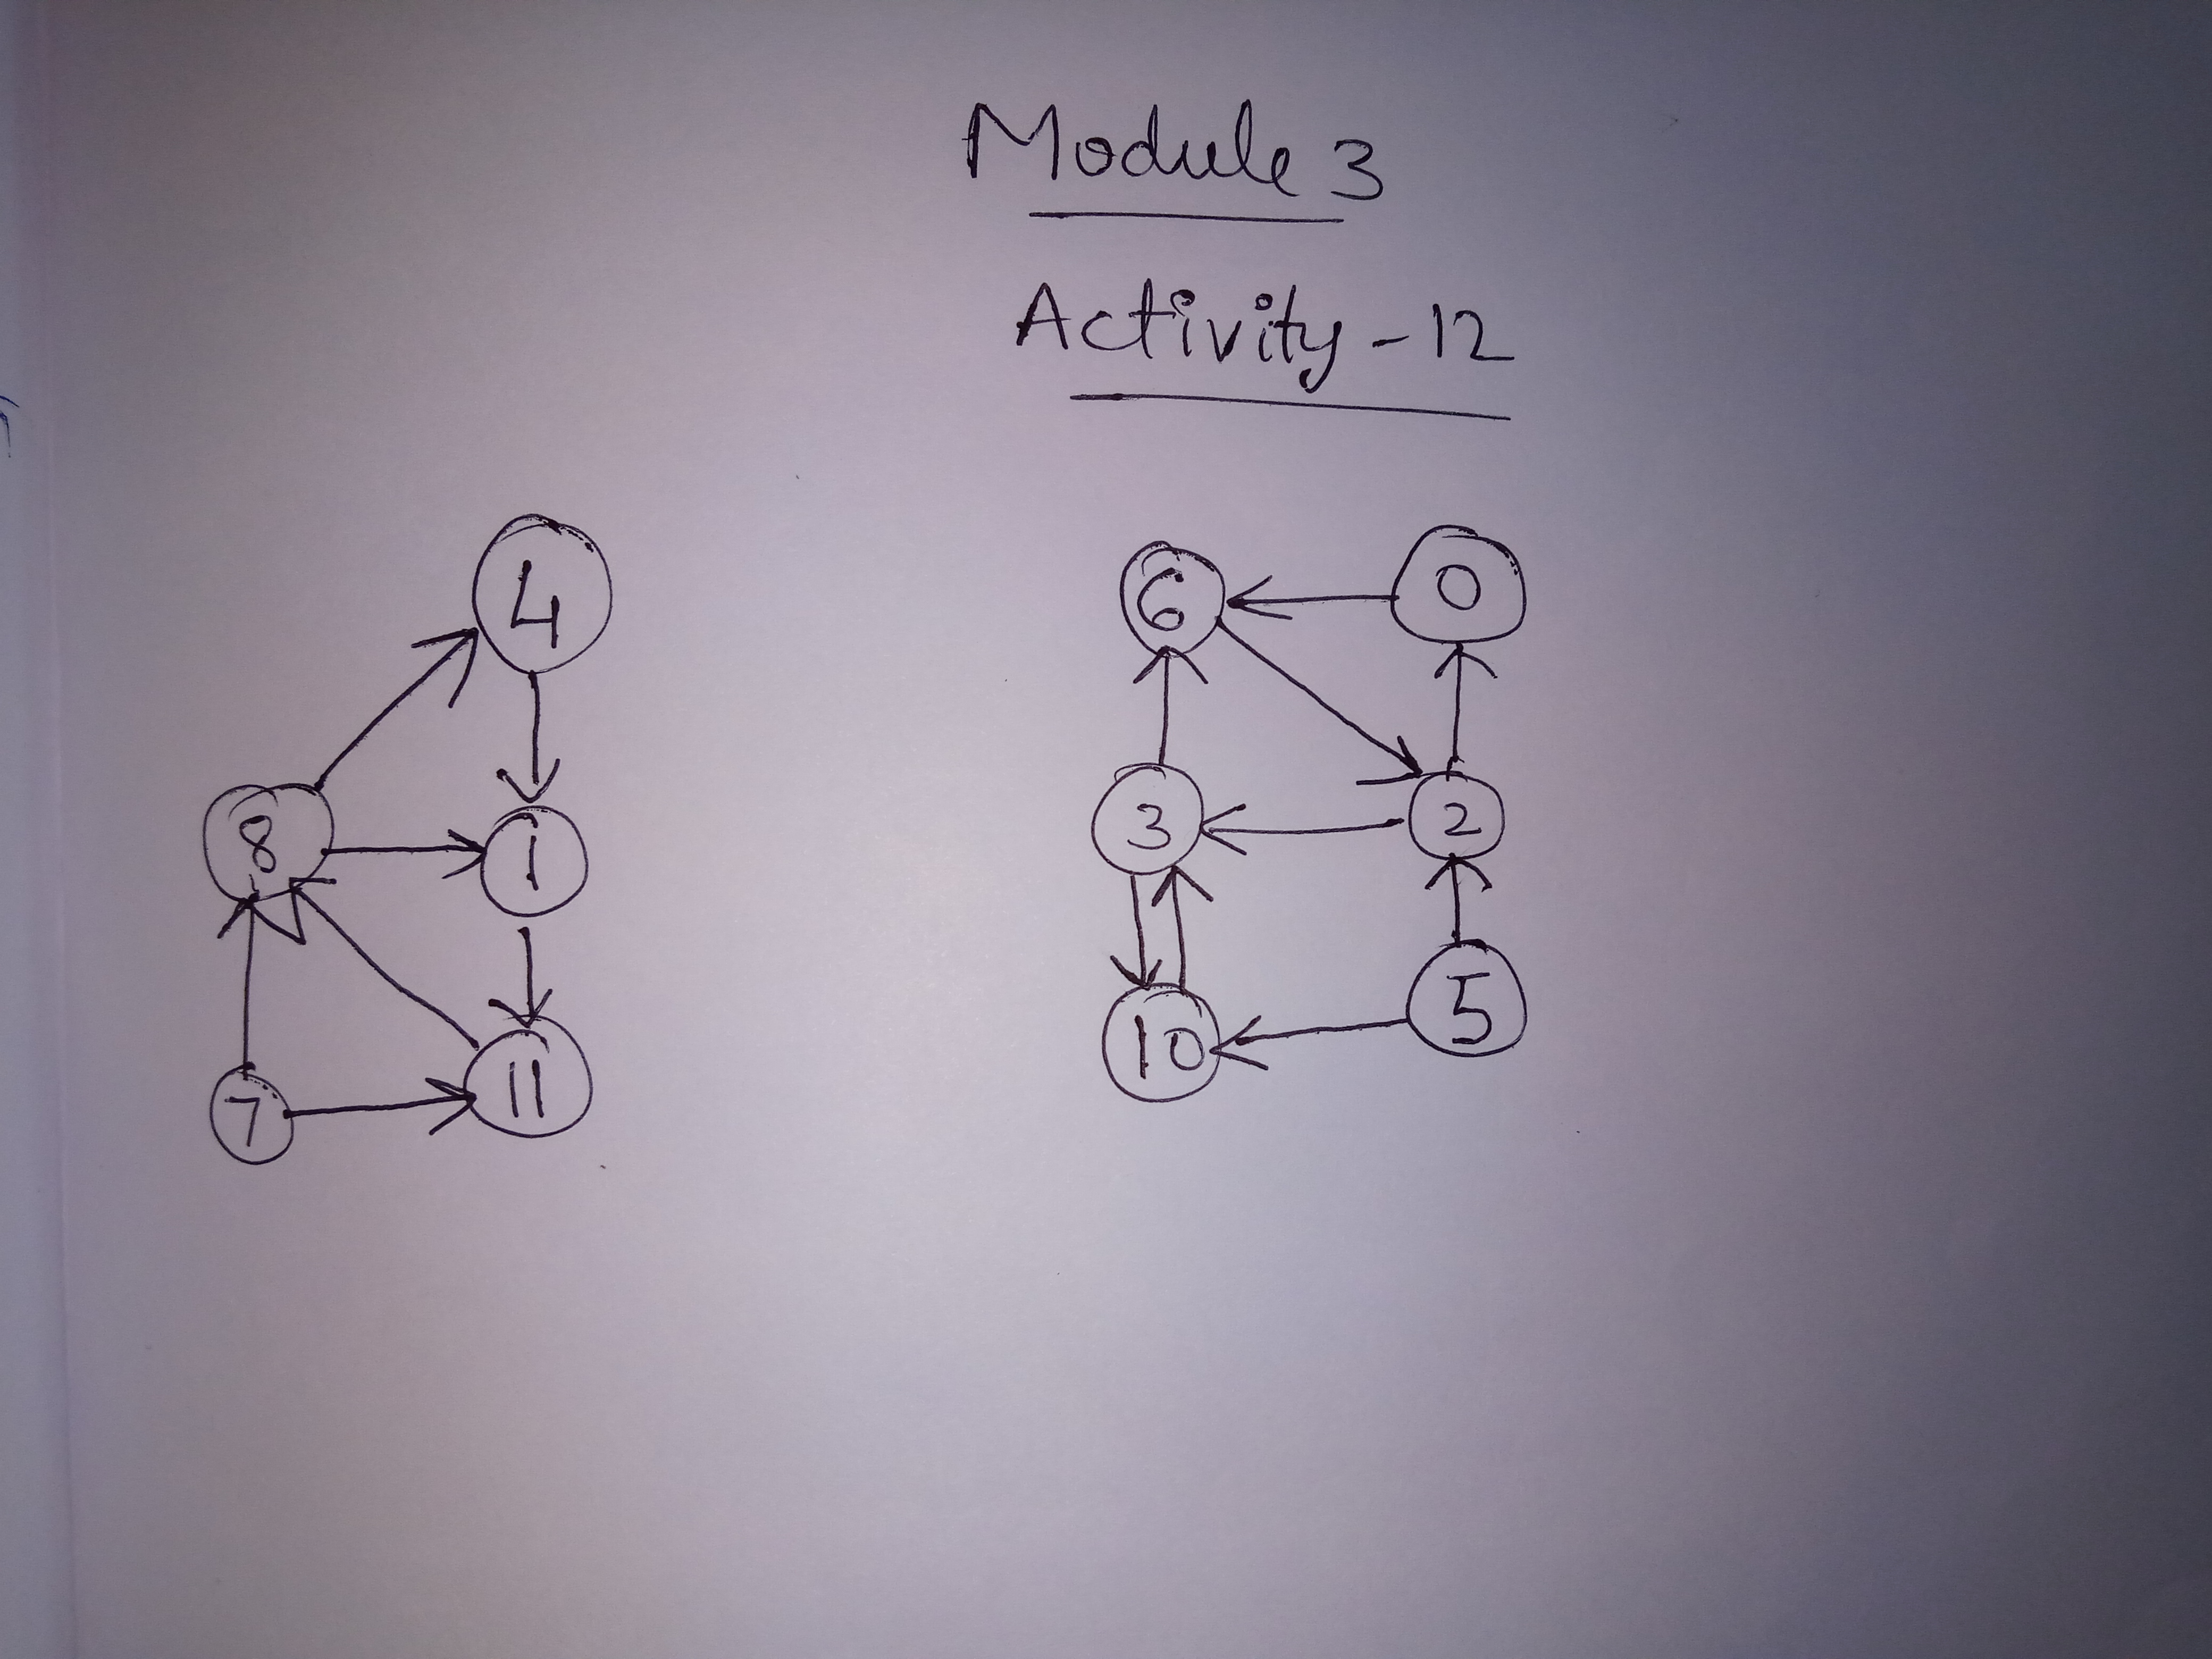 Module 3
Activity - 12
4
8
1
7
11
6
0
3
2
10
5